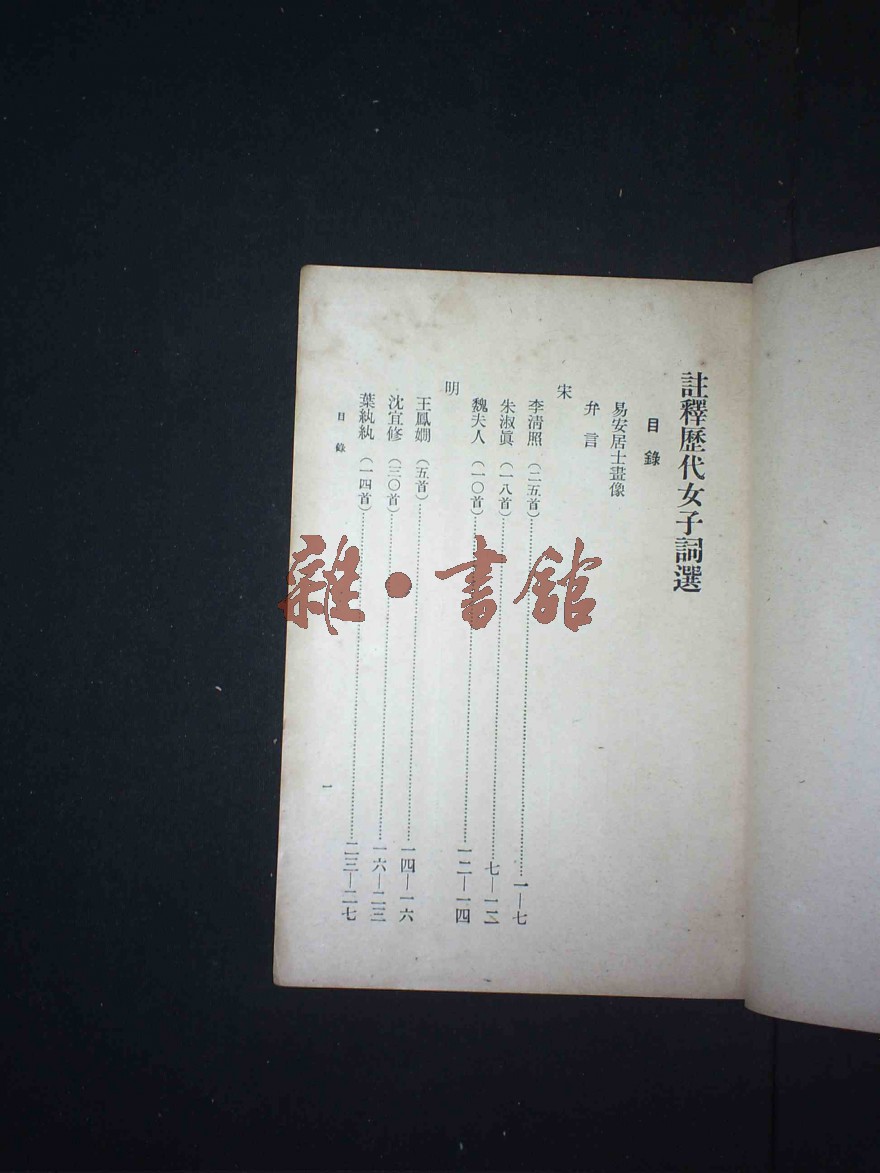 註釋歷代女子詞選
目錄
易安居士畫像
弁言
宋
李清照（二五首）……一—七
朱淑眞（一八首）……七—一二
魏夫人（一〇首）……一二—一四
明
王鳳嫺（五首）……一四—一六
沈宜修（三〇首）……一六—二三
葉紈紈（一四首）……二三—二七
目錄
一
雜·書館